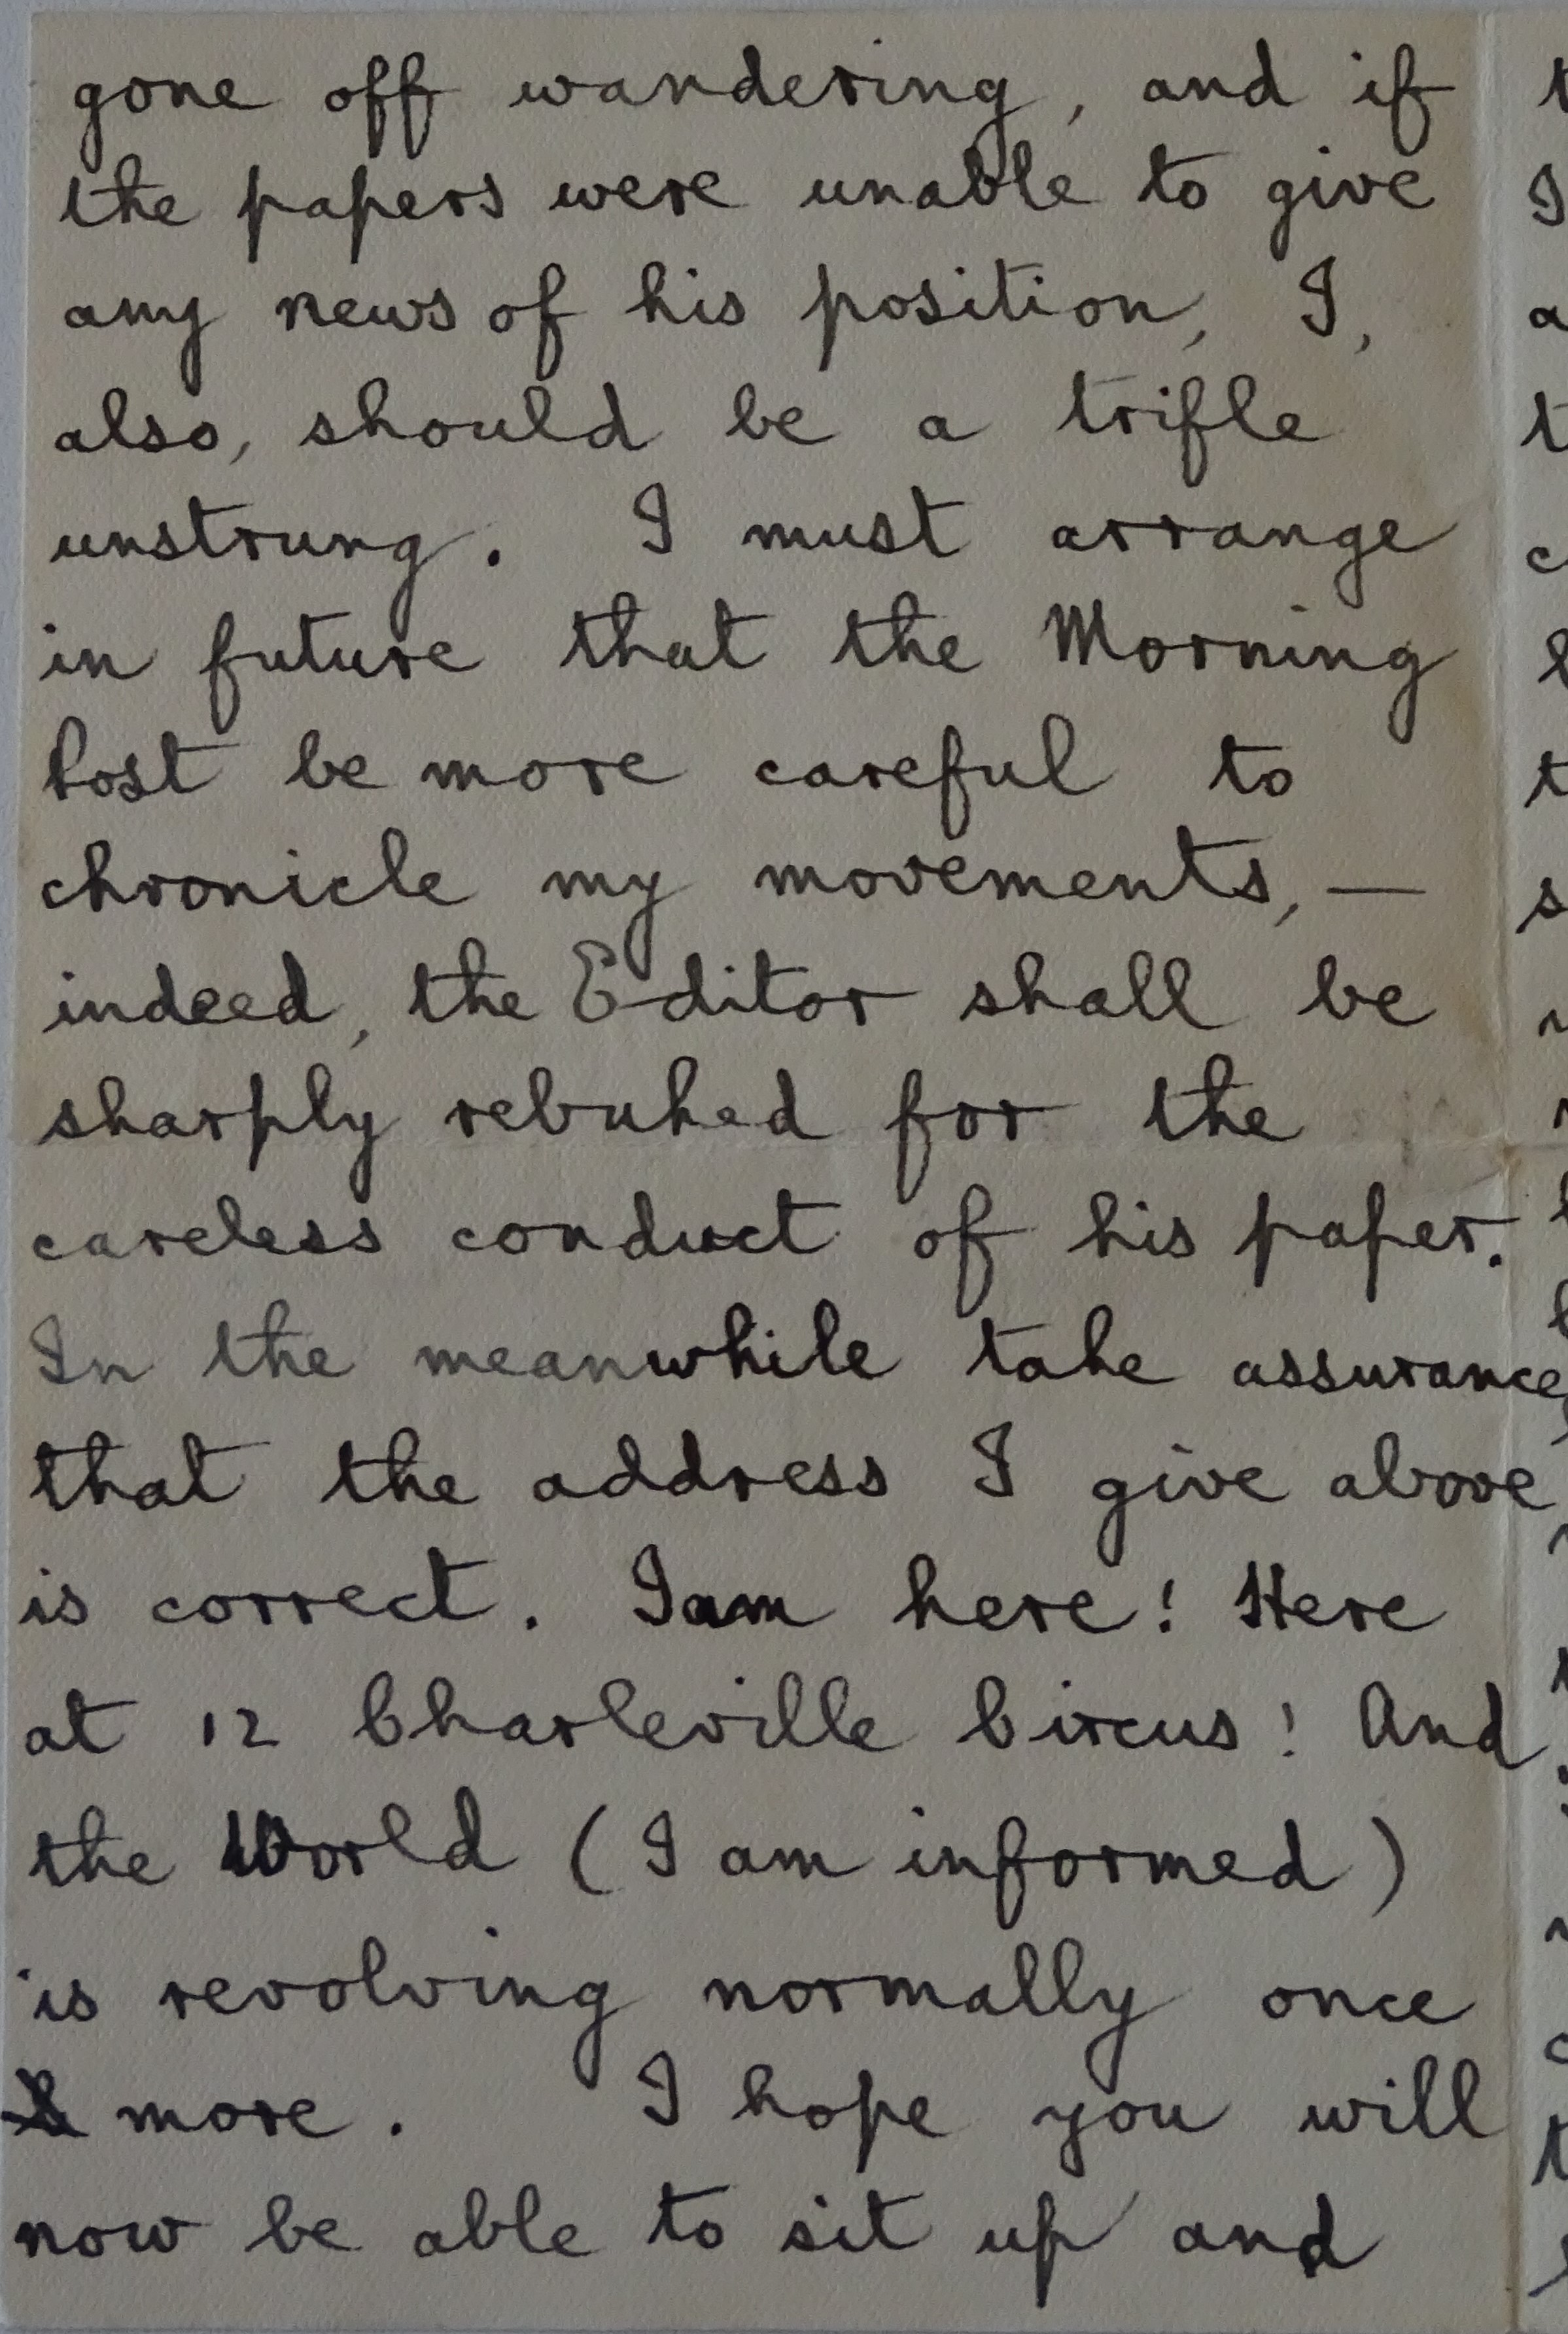 gone off wandering, and if
the papers were unable to give
any news of his position, I,
also, should be a trifle
unstrung. I must arrange
in future that the Morning
Post be more careful to
chronicle my movements, —
indeed, the Editor shall be
sharply rebuked for the
careless conduct of his paper.
In the meanwhile take assurance
that the address I give above
is correct. I am here! Here
at 12 Charleville Circus! And
the World (I am informed)
is revolving normally once
more. I hope you will
now be able to sit up and